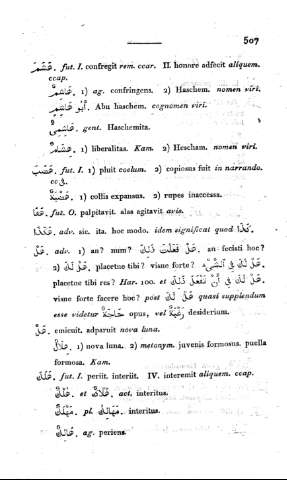 507
هَشَمَ. fut. I. confregit rem. ccar. II. honore adfecit aliquem.
ccap.
هَاشِمٌ. 1) ag. confringens. 2) Haschem. nomen viri.
أَبُو هَاشِمٍ. Abu haschem. cognomen viri.
هَاشِمِىٌّ. gent. Haschemita.
هِشَامٌ. 1) liberalitas. Kam. 2) Hescham. nomen viri.
هَضَبَ. fut. I. 1) pluit coelum. 2) copiosus fuit in narrando.
cc فى.
هَضْبَةٌ. 1) collis expansus. 2) rupes inaccessa.
هَفَا. fut. O. palpitavit. alas agitavit avis.
هٰكَذَا. adv. sic. ita. hoc modo. idem significat quod كَذَا.
هَلْ. adv. 1) an? num? هَلْ فَعَلْتَ ذٰلِكَ. an fecisti hoc?
2) هَلْ لَكَ. placetne tibi? visne forte? هَلْ لَكَ فِى الشَّىْءِ.
placetne tibi res? Har. 100. et هَلْ لَكَ فِى أَنْ تَفْعَلَ ذٰلِكَ.
visne forte facere hoc? post لَكَ quasi supplendum
esse videtur حَاجَةٌ opus, vel رَغْبَةٌ desiderium.
هَلَّ. emicuit. adparuit nova luna.
هِلَالٌ. 1) nova luna. 2) metonym. juvenis formosus. puella
formosa. Kam.
هَلَكَ. fut. I. periit. interiit. IV. interemit aliquem. ccap.
هُلْكٌ. et هَلَاكٌ. act. interitus.
مَهْلَكٌ. pl. مَهَالِكُ. interitus.
هَالِكٌ. ag. periens.